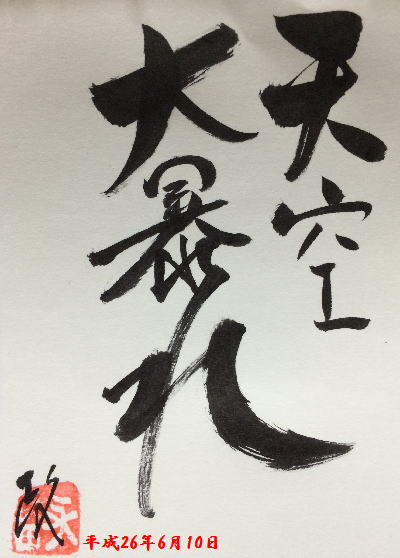 天空
大暴れ
平成26年6月10日